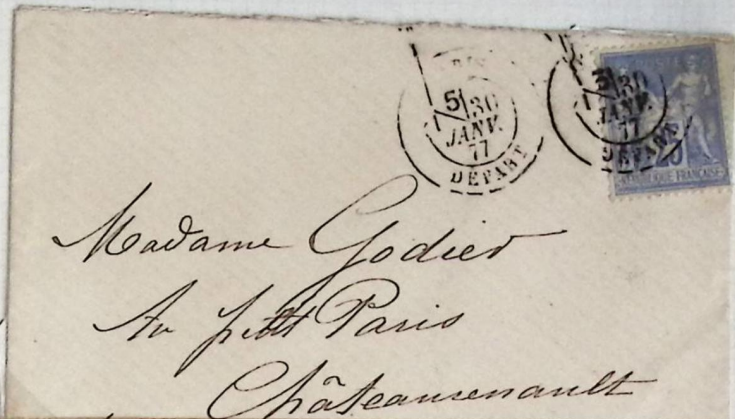 PARIS
5
30
JANV.
77
DÉPART
POSTE
30
JANV.
77
DÉPART
25
RÉPUBLIQUE FRANÇAISE
Madame Godier
Au petit Paris
Châteaurenault